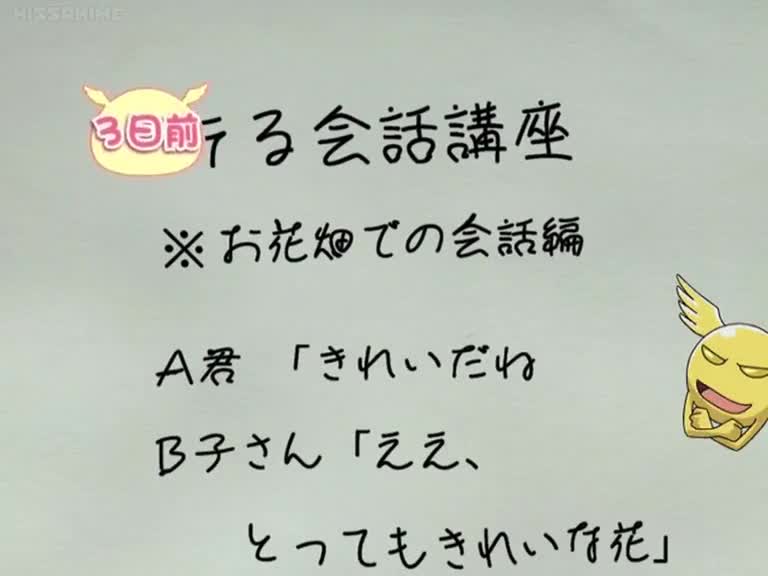 HISSAHIME
3日前
テる会話講座
※お花畑での会話編
A君 「きれいだね
B子さん「ええ、
とってもきれいな花」